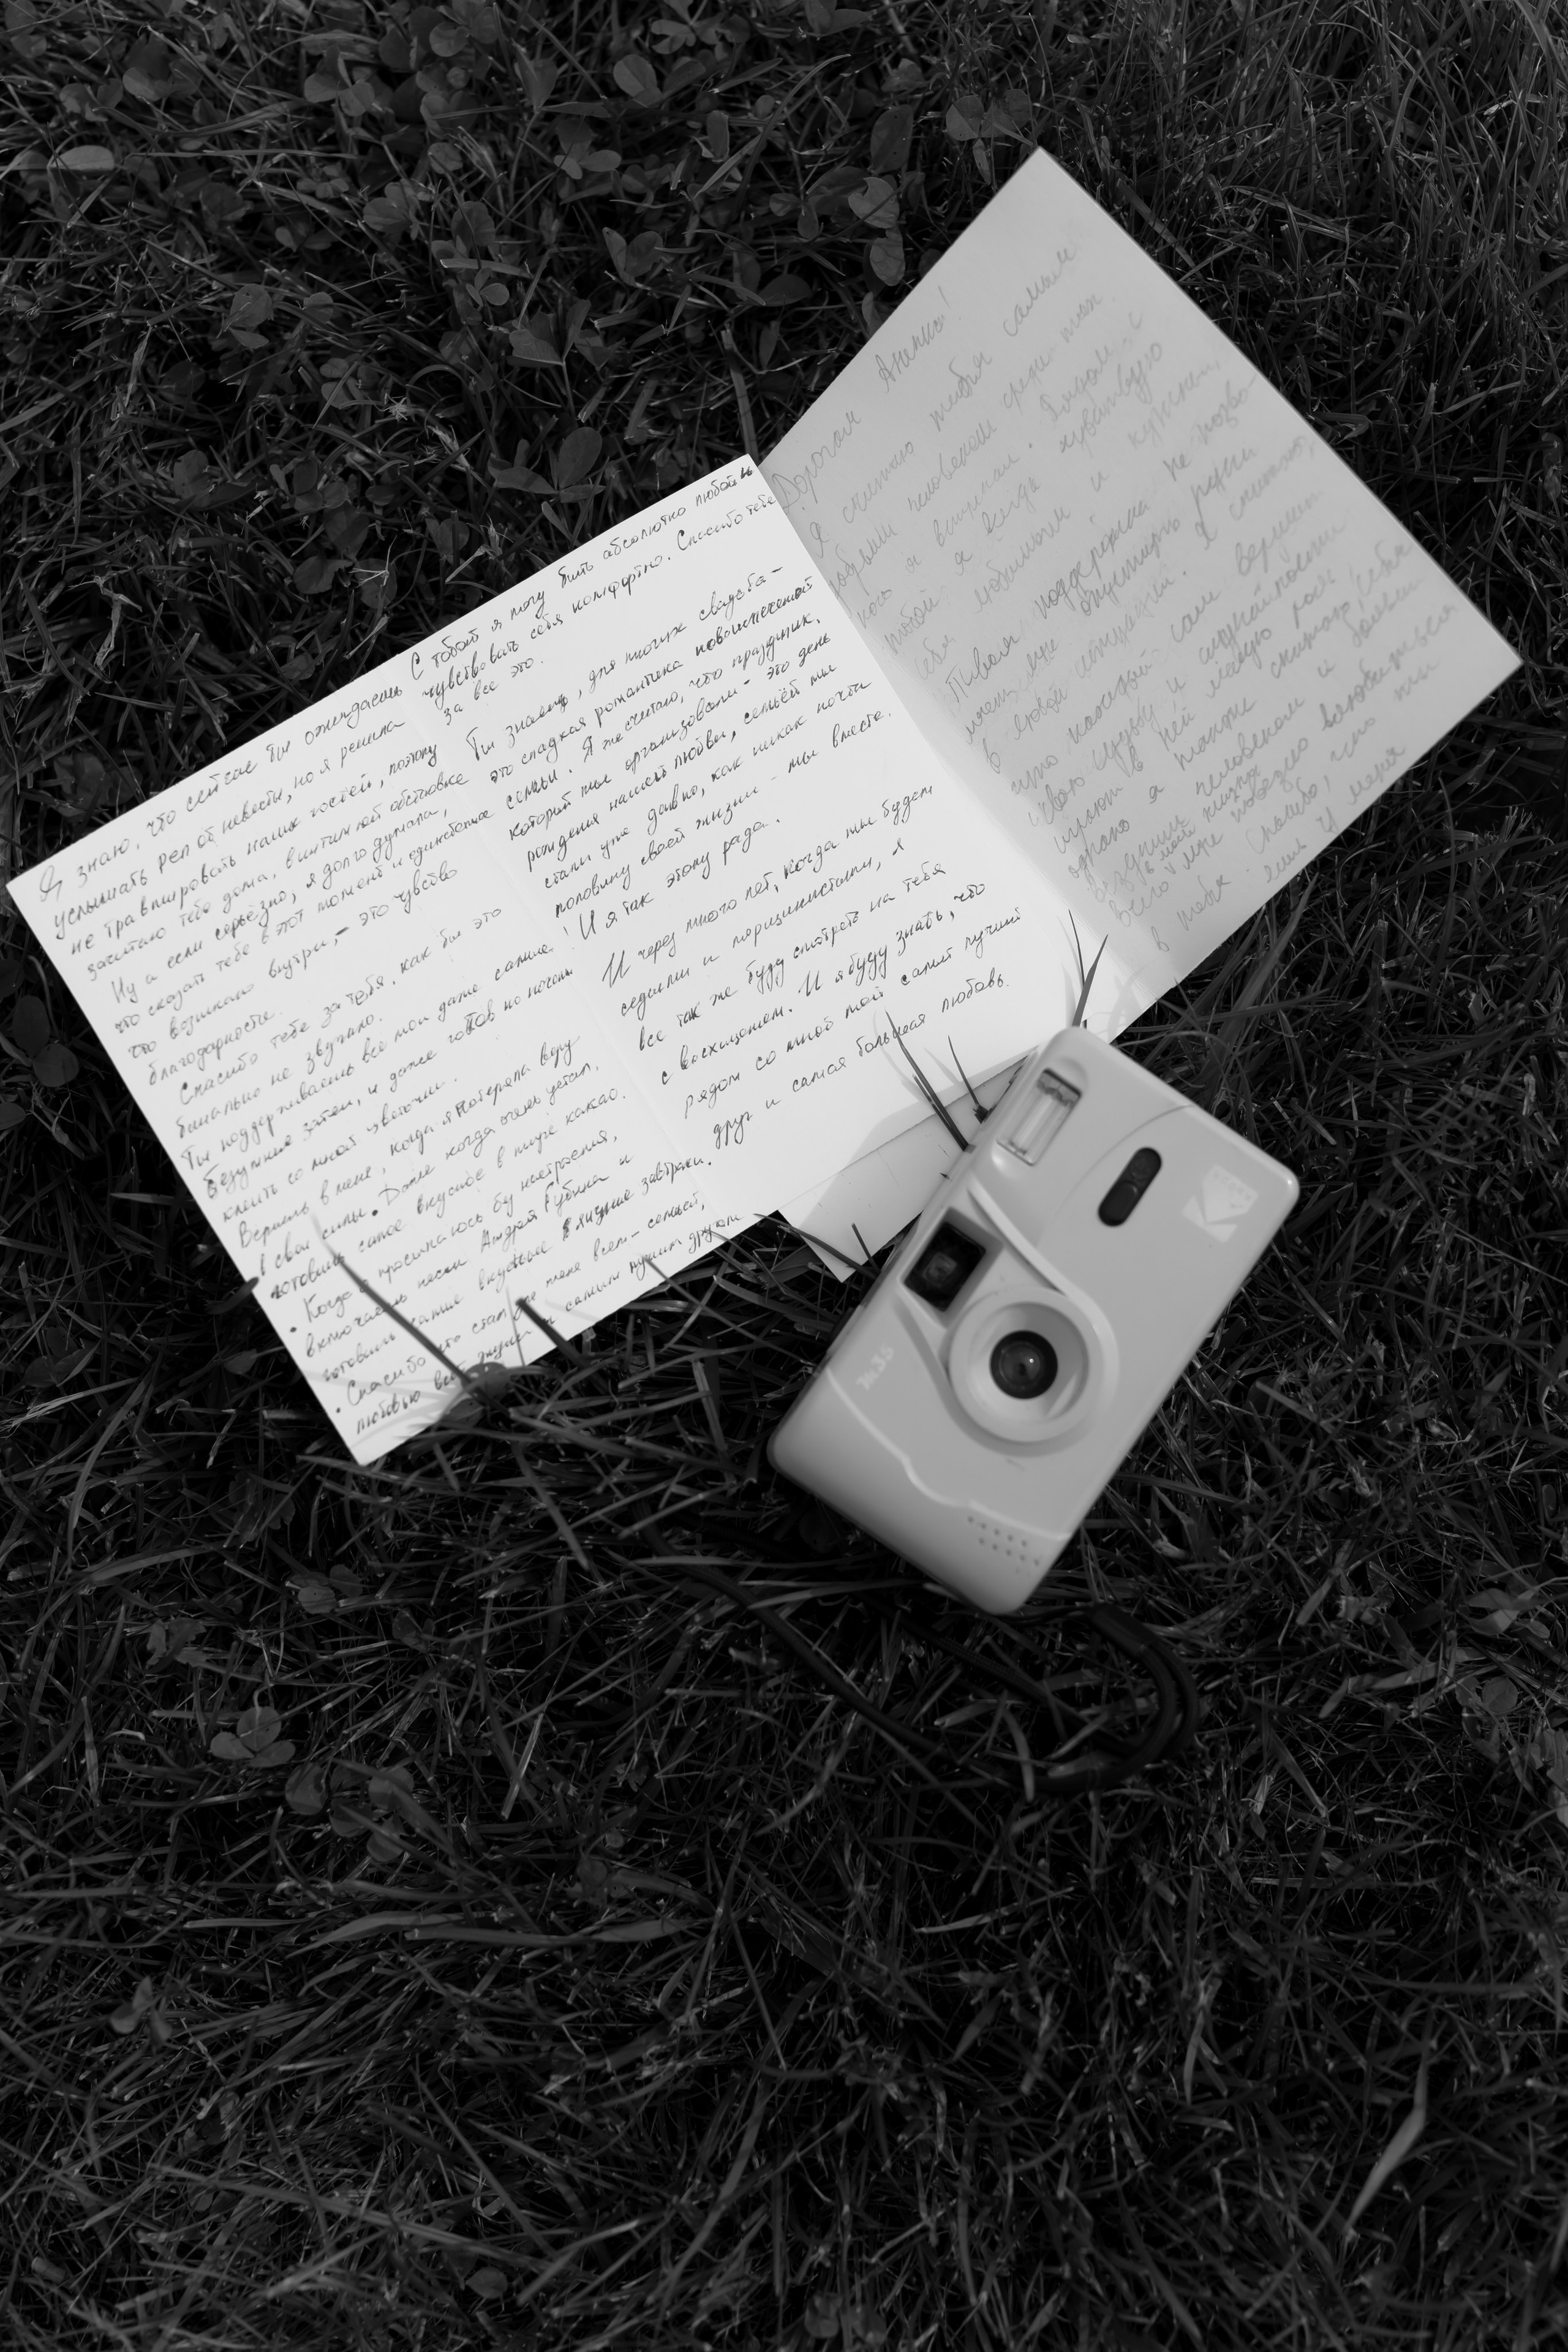 Я знаю, что сейчас ты ожидаешь
услышать реп от невесты, но я решила
не травмировать наших гостей, поэтому
зачитаю тебе дома, в интимной обстановке
Ну а если серьёзно, я долго думала,
что сказать тебе в этот момент и единственное
что возникало внутри, - это чувство
благодарности.
Спасибо тебе за тебя. как бы это
банально не звучало.
Ты поддерживаешь все мои даже самые
безумные затеи, и даже готов но ночам
клеить со мной цветочки.
Веришь в меня, когда я потеряла веру
в свои силы. Даже когда очень устал,
готовишь самое вкусное в мире какао.
• Когда я просыпаюсь без настроения,
включаешь песни Андрея Губина и
готовишь самые вкусные в яичные завтраки.
• Спасибо что стал для меня всем - семьёй,
любовью всей жизни и самым лучшим другом
С тобой я могу быть абсолютно любой и
чувствовать себя комфортно. Спасибо тебе
за все это.
Ты знаешь, для многих свадьба -
это сладкая романтика новоиспеченой
семьи. Я же считаю, что праздник,
который мы организовали - это день
рождения нашей любви, семьёй мы
стали уже давно, как никак почти
половину своей жизни - мы вместе.
И я так этому рада.
И через много лет, когда мы будем
седыми и морщинистыми, я
все так же буду смотреть на тебя
с восхищением. И я буду знать, что
рядом со мной мой самый лучший
друг и самая большая любовь.
Дорогая Анечка!
Я считаю тебя самым
добрым человеком среди тех
кого я встречал. Рядом с
тобой я всегда чувствую
себя любимым и нужным,
Твоя поддержка не позво
мне опустить руки
в любой ситуации. Я считаю,
что каждый сам вершит
свою судьбу и случайности
играют в ней малую роль
однако я также считаю, себя
везучим человеком и больше
всего в моей жизни
мне повезло влюбиться
в тебя. Спасибо, что ты
есть у меня
KODAK
M35